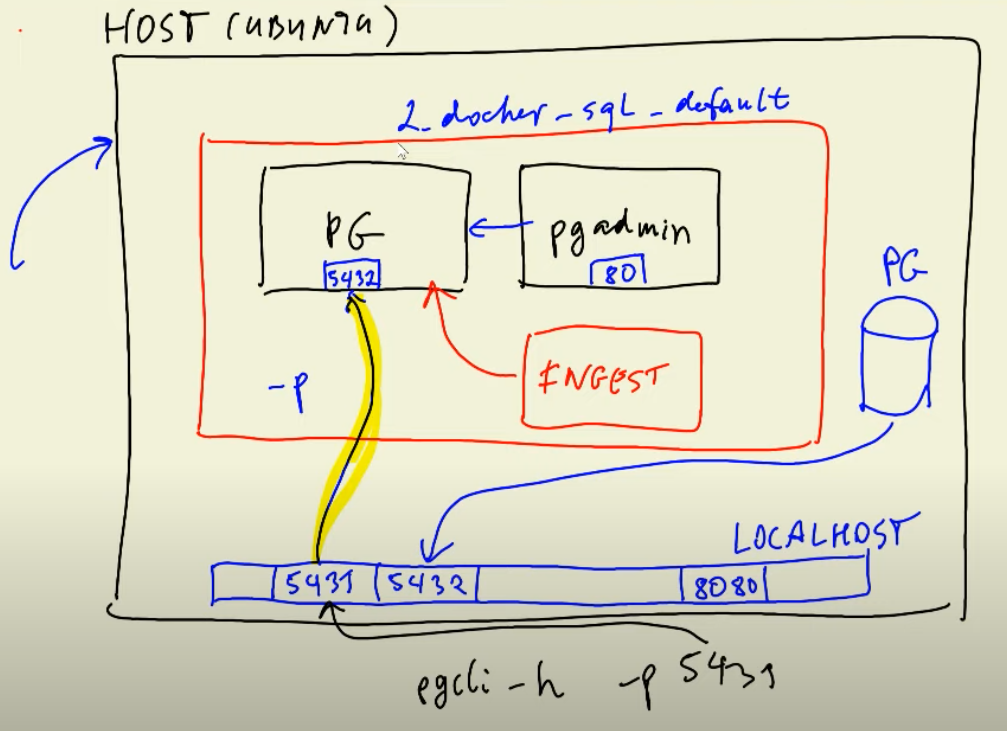 HOST (UBUNTU)
2_docker_sql_default
PG
5432
pgadmin
80
PG
INGEST
-p
LOCALHOST
5431
5432
8080
pgcli -h -p 5431